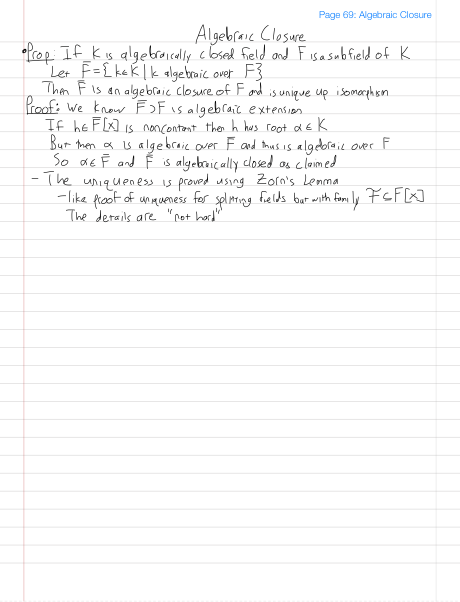 Page 69: Algebraic Closure
Algebraic Closure
• Prop: If K is algebraically closed field and F is a subfield of K
Let F̄ = {k∈K | k algebraic over F}
Then F̄ is an algebraic closure of F and is unique up isomorphism
Proof: We know F̄⊃F is algebraic extension
If h∈F̄[x] is nonconstant then h has root α∈K
But then α is algebraic over F̄ and thus is algebraic over F
So α∈F̄ and F̄ is algebraically closed as claimed
- The uniqueness is proved using Zorn's Lemma
- like proof of uniqueness for splitting fields but with family ℱ⊆F[x]
The details are "not hard"